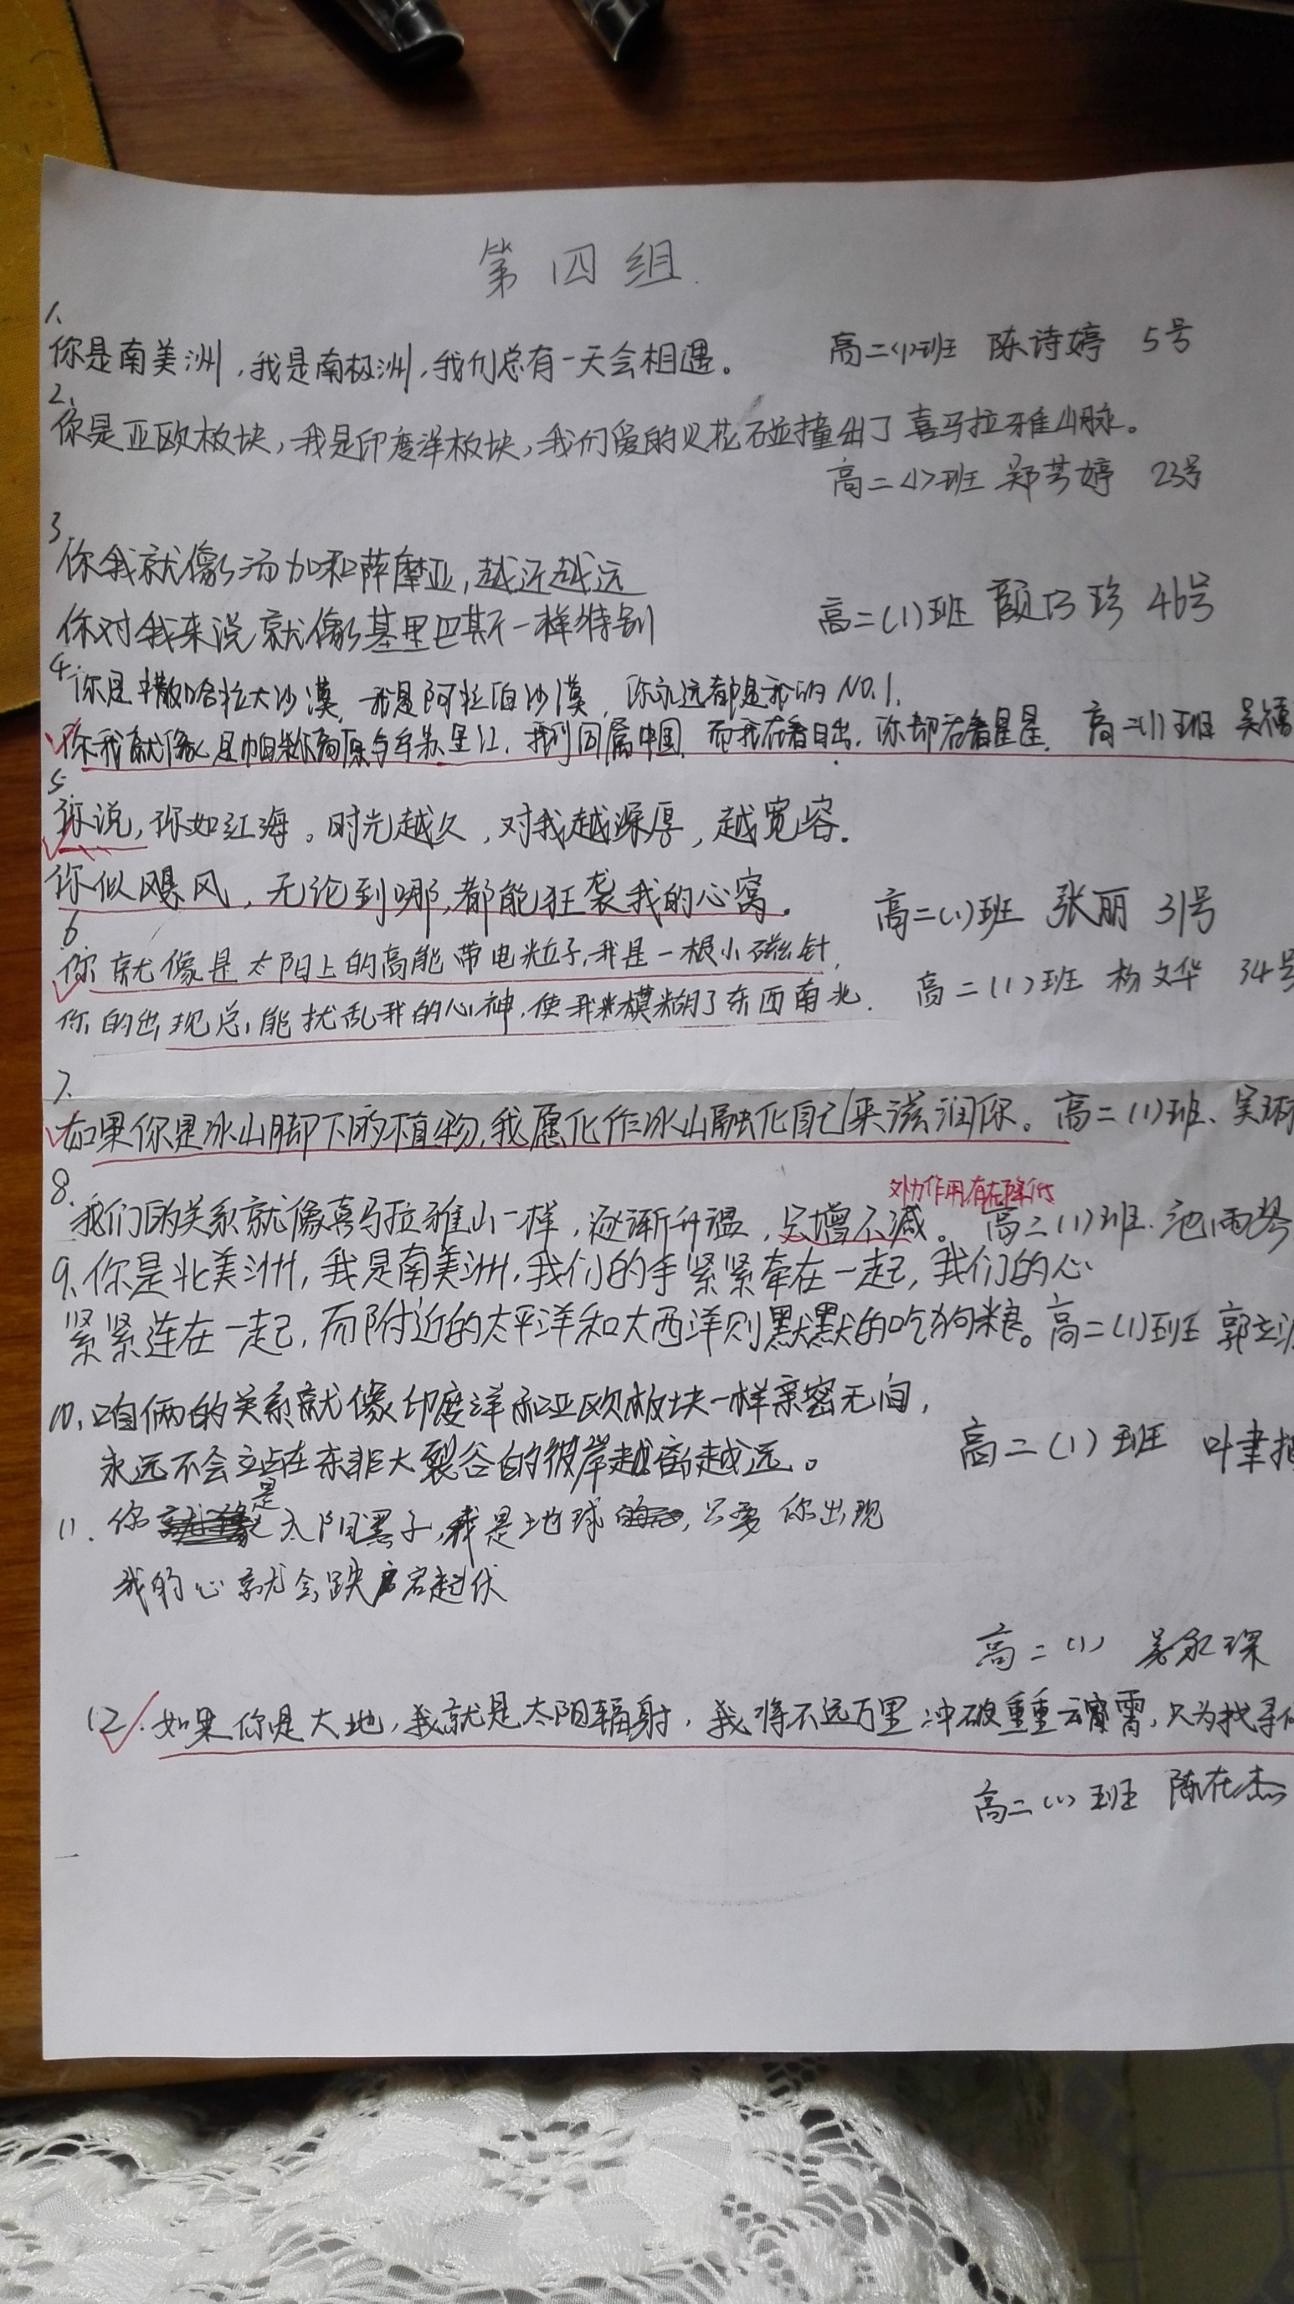 第四组
1、
你是南美洲，我是南极洲，我们总有一天会相遇。 高二(1)班 陈诗婷 5号
2、
你是亚欧板块，我是印度洋板块，我们爱的火花碰撞出了喜马拉雅山脉。
高二(1)班 郑芳婷 23号
3
你我就像汤加和萨摩亚，越近越远
你对我来说就像基里巴斯一样特别 高二(1)班 颜巧珍 46号
4
你是撒哈拉大沙漠，我是阿拉伯沙漠，你永远都是我的NO.1.
你我就像是帕米尔高原与乌苏里江，我们同属中国，而我在看日出，你却在看星星. 高二(1)班 吴
5
你说，你如红海。时光越久，对我越深厚，越宽容.
你似飓风，无论到哪，都能狂袭我的心窝。 高二(1)班 张丽 31号
6.
你就像是太阳上的高能带电粒子，我是一根小磁针，
你的出现总能扰乱我的心神，使我模糊了东西南北. 高二(1)班 杨文华 34号
7.
如果你是冰山脚下的植物，我愿化作冰山融化自己来滋润你。高二(1)班. 吴
8.
外力作用有在降低
我们的关系就像喜马拉雅山一样，逐渐升温，只增不减。高二(1)班. 池雨琴
9.你是北美洲，我是南美洲，我们的手紧紧牵在一起，我们的心
紧紧连在一起，而附近的太平洋和大西洋则默默的吃狗粮。高二(1)班 郭
10、咱俩的关系就像印度洋和亚欧板块一样亲密无间，
永远不会立占在东非大裂谷的彼岸越离越远。 高二(1)班 叶聿
11. 你是太阳黑子，我是地球，只要你出现
我的心就会跌宕起伏
高二(1) 吴永琛
12. 如果你是大地，我就是太阳辐射，我将不远万里冲破重重云霄，只为找寻
高二(1)班 陈在杰